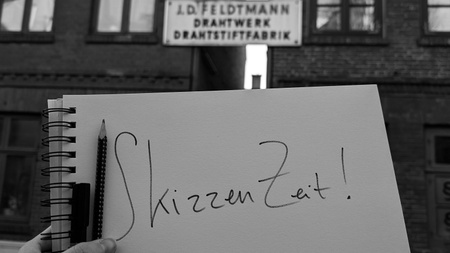 J.D. FELDTMANN
DRAHTWERK
DRAHTSTIFTFABRIK
SkizzenZeit!